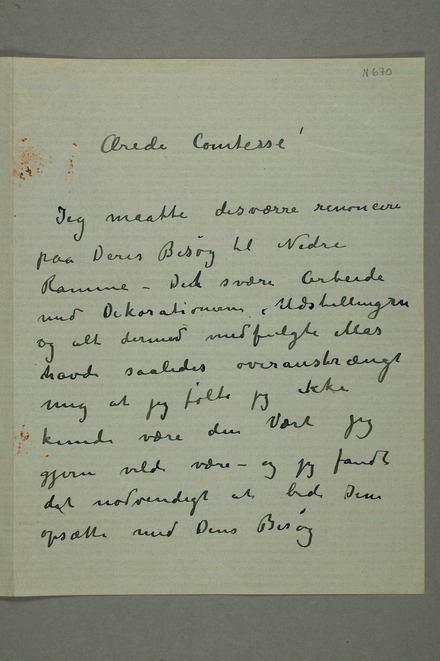 N 670
Ærede Comtesse!
Jeg maatte desværre renoncere
paa Deres Besøg til Nedre
Ramme – Det svære Arbeide
med Dekorationen, Udstillingen
og alt dermed medfulgte Mas
havde saaledes overanstrængt
mig at jeg følte jeg ikke
kunde være den Vært jeg
gjern vilde være – og jeg fandt
det nødvendigt at bede Dem
opsætte med Deres Besøg